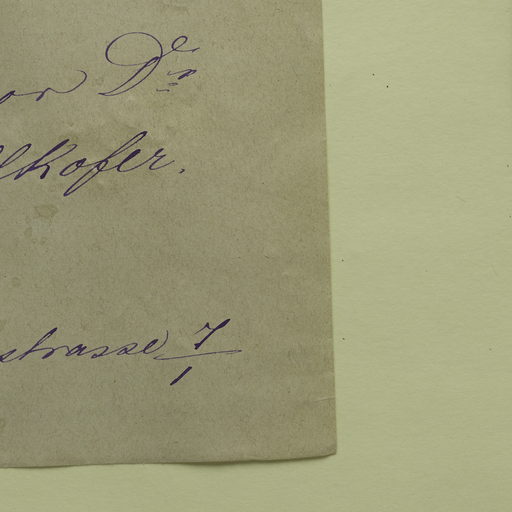 or Dr.
lkofer.
strasse 7/1